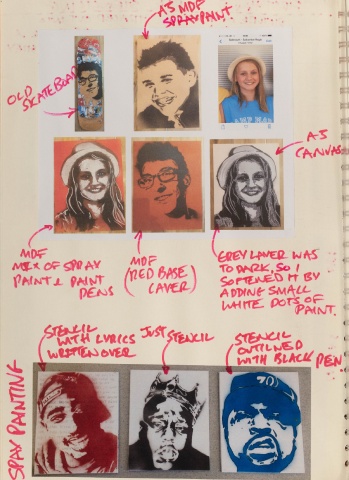 A5 MDF
SPRAYPAINT
OLD
SKATEBOARD
A5
CANVAS
MDF
MIX OF SPRAY
PAINT & PAINT
PENS
MDF
(RED BASE
LAYER)
GREY LAYER WAS
TO DARK, SO I
SOFTENED IT BY
ADDING SMALL
WHITE DOTS OF
PAINT.
STENCIL
WITH LYRICS
WRITTEN OVER
JUST
STENCIL
STENCIL
OUTLINED
WITH BLACK PEN
SPAY PAINTING